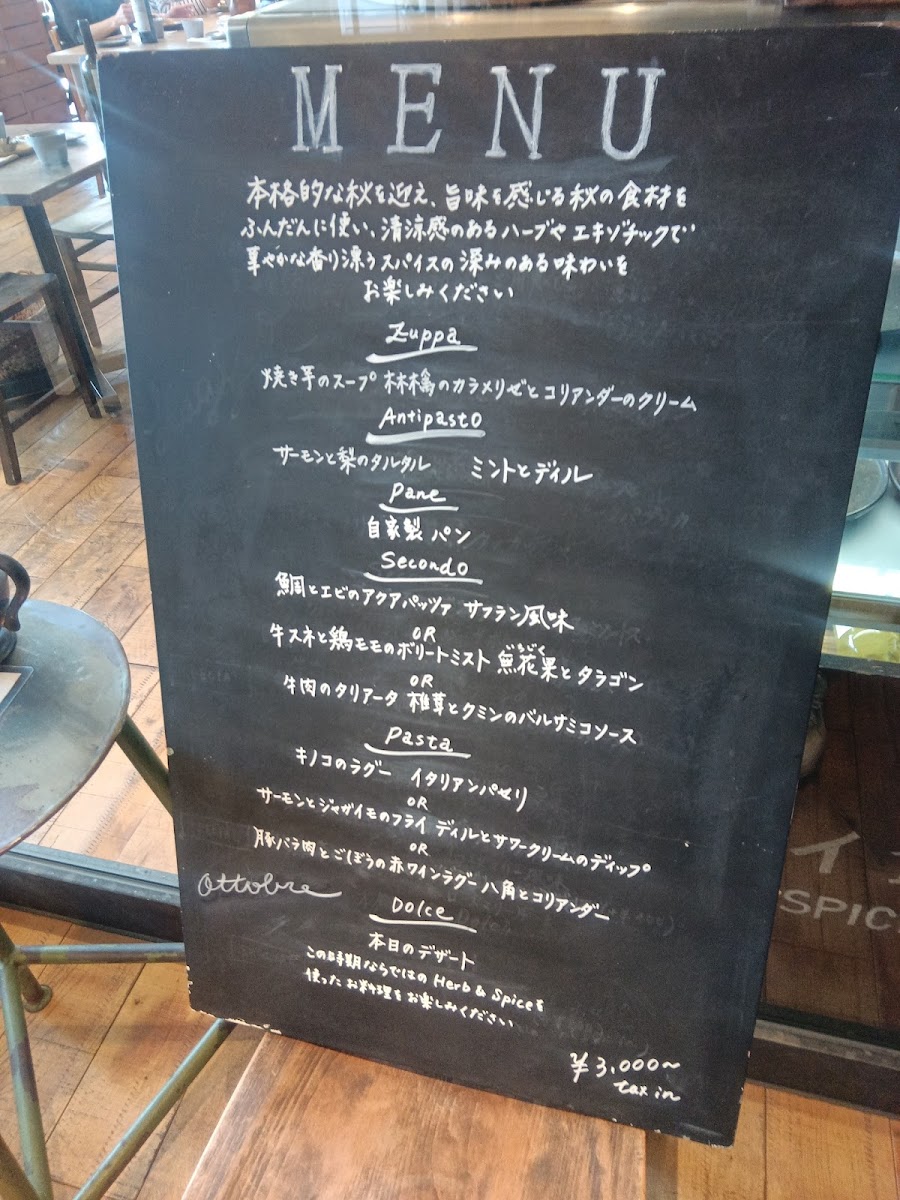 MENU
本格的な秋を迎え、旨味を感じる秋の食材を
ふんだんに使い、清涼感のあるハーブや エキゾチックで
華やかな香り漂うスパイスの深みのある味わいを
お楽しみください
Zuppa
焼き芋のスープ 林檎のカラメリゼと コリアンダーのクリーム
Antipasto
サーモンと梨のタルタル ミントとディル
Pane
自家製 パン
Secondo
鯛とエビのアクアパッツァ サフラン風味
OR
牛スネと鶏モモのボリートミスト 無花果とタラゴン
いちじく
OR
牛肉のタリアータ 椎茸とクミンのバルサミコソース
Pasta
キノコのラグー イタリアンパセリ
OR
サーモンとジャガイモのフライ ディルとサワークリームのディップ
OR
豚バラ肉とごぼうの赤ワインラグー 八角とコリアンダー
Ottobre
Dolce
本日のデザート
この時期ならではの Herb & Spiceを
使ったお料理をお楽しみください
¥3,000〜
tax in
SPIC